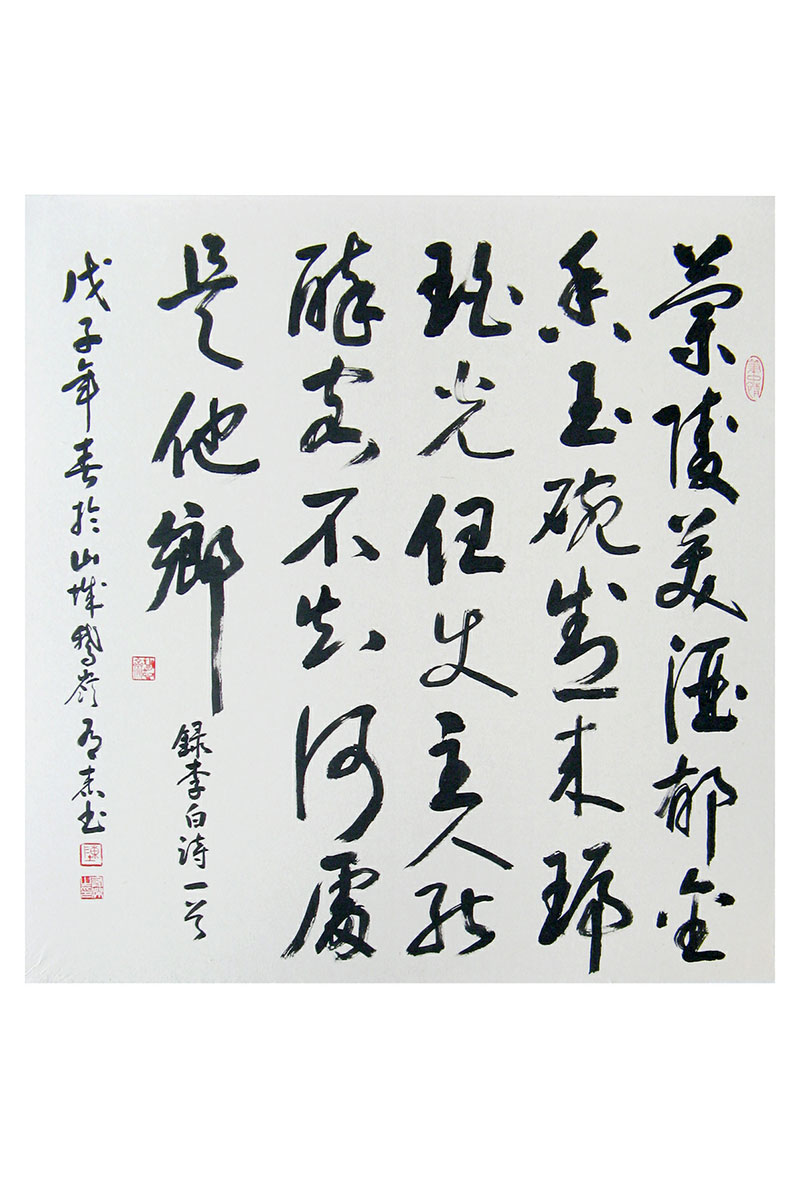 蘭陵美酒郁金
香玉碗盛来琥
珀光但使主人能
醉客不知何處
是他鄉
録李白詩一首
戊子年春於山城鵝嶺书